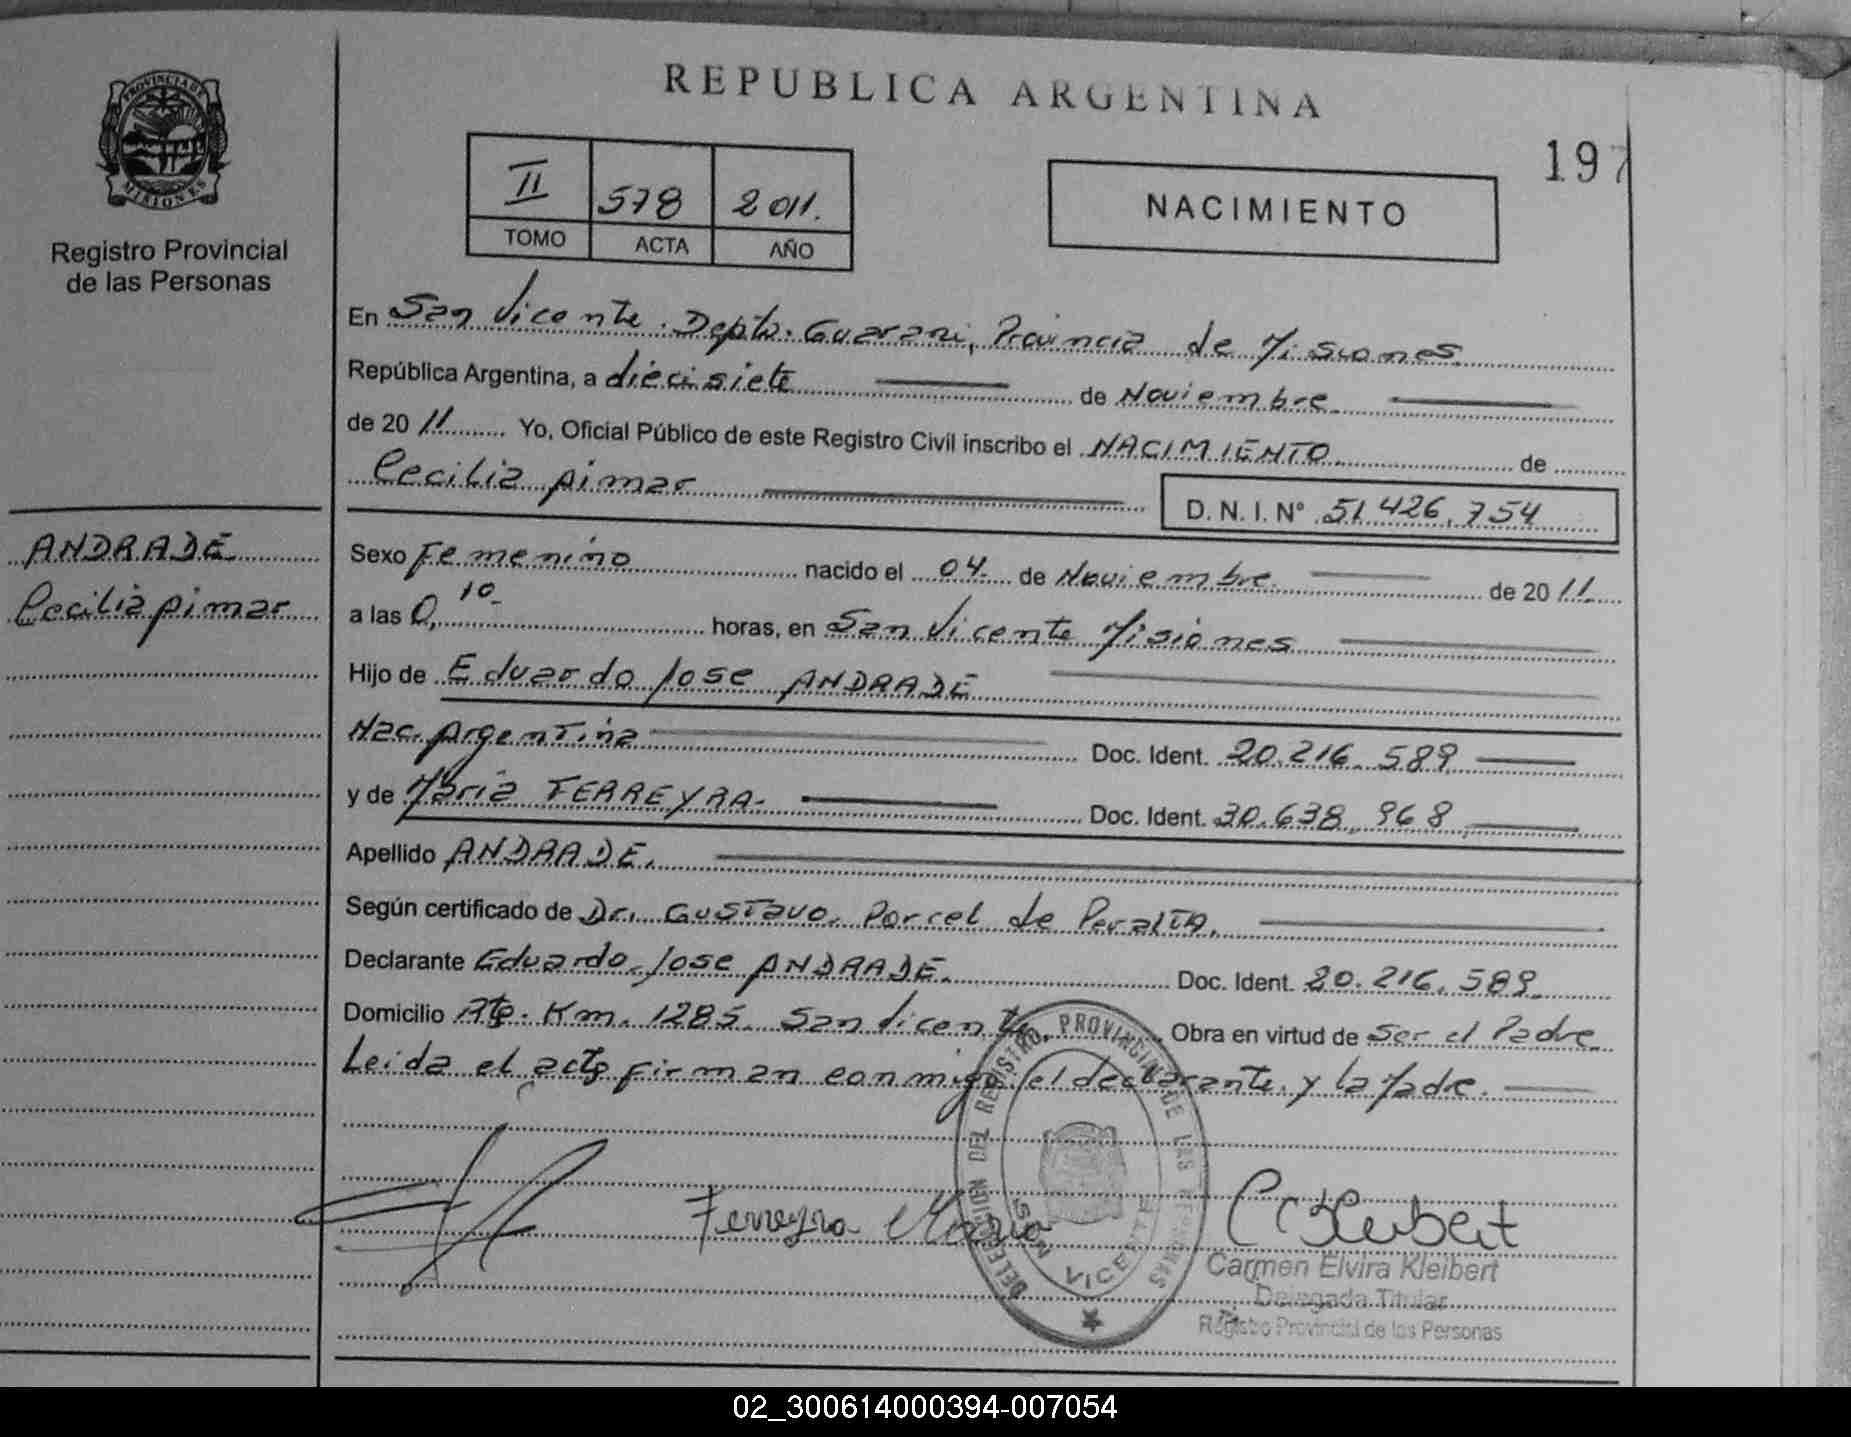 REPUBLICA ARGENTINA
197
PROVINCIA DE
MISIONES
Registro Provincial
de las Personas
II 578 2011.
TOMO ACTA AÑO
NACIMIENTO
En San Vicente. Depto. Guarani, Provincia de Misiones
República Argentina, a diecisiete de Noviembre
de 2011 Yo, Oficial Público de este Registro Civil inscribo el NACIMIENTO de
Cecilia pimar
D. N. I. N° 51.426.754
ANDRADE
Cecilia pimar
Sexo Femenino nacido el 04 de Noviembre de 2011
a las 0,10 horas, en San Vicente Misiones
Hijo de Eduardo Jose ANDRADE
Nac. Argentina Doc. Ident. 20.216.589
y de Maria FERREYRA- Doc. Ident. 30.638.968
Apellido ANDRADE.
Según certificado de Dr. Gustavo Porcel de Peralta.
Declarante Eduardo Jose ANDRADE. Doc. Ident. 20.216.589.
Domicilio Km. 1285. San Vicente Obra en virtud de Ser el Padre
Leida el acta firman conmigo el declarante y la Madre.
DELEGACIÓN DEL REGISTRO PROVINCIAL DE LAS PERSONAS
SAN VICENTE
Ferreyra Maria
CEKleibert
Carmen Elvira Kleibert
Delegada Titular
Registro Provincial de las Personas
02_300614000394-007054